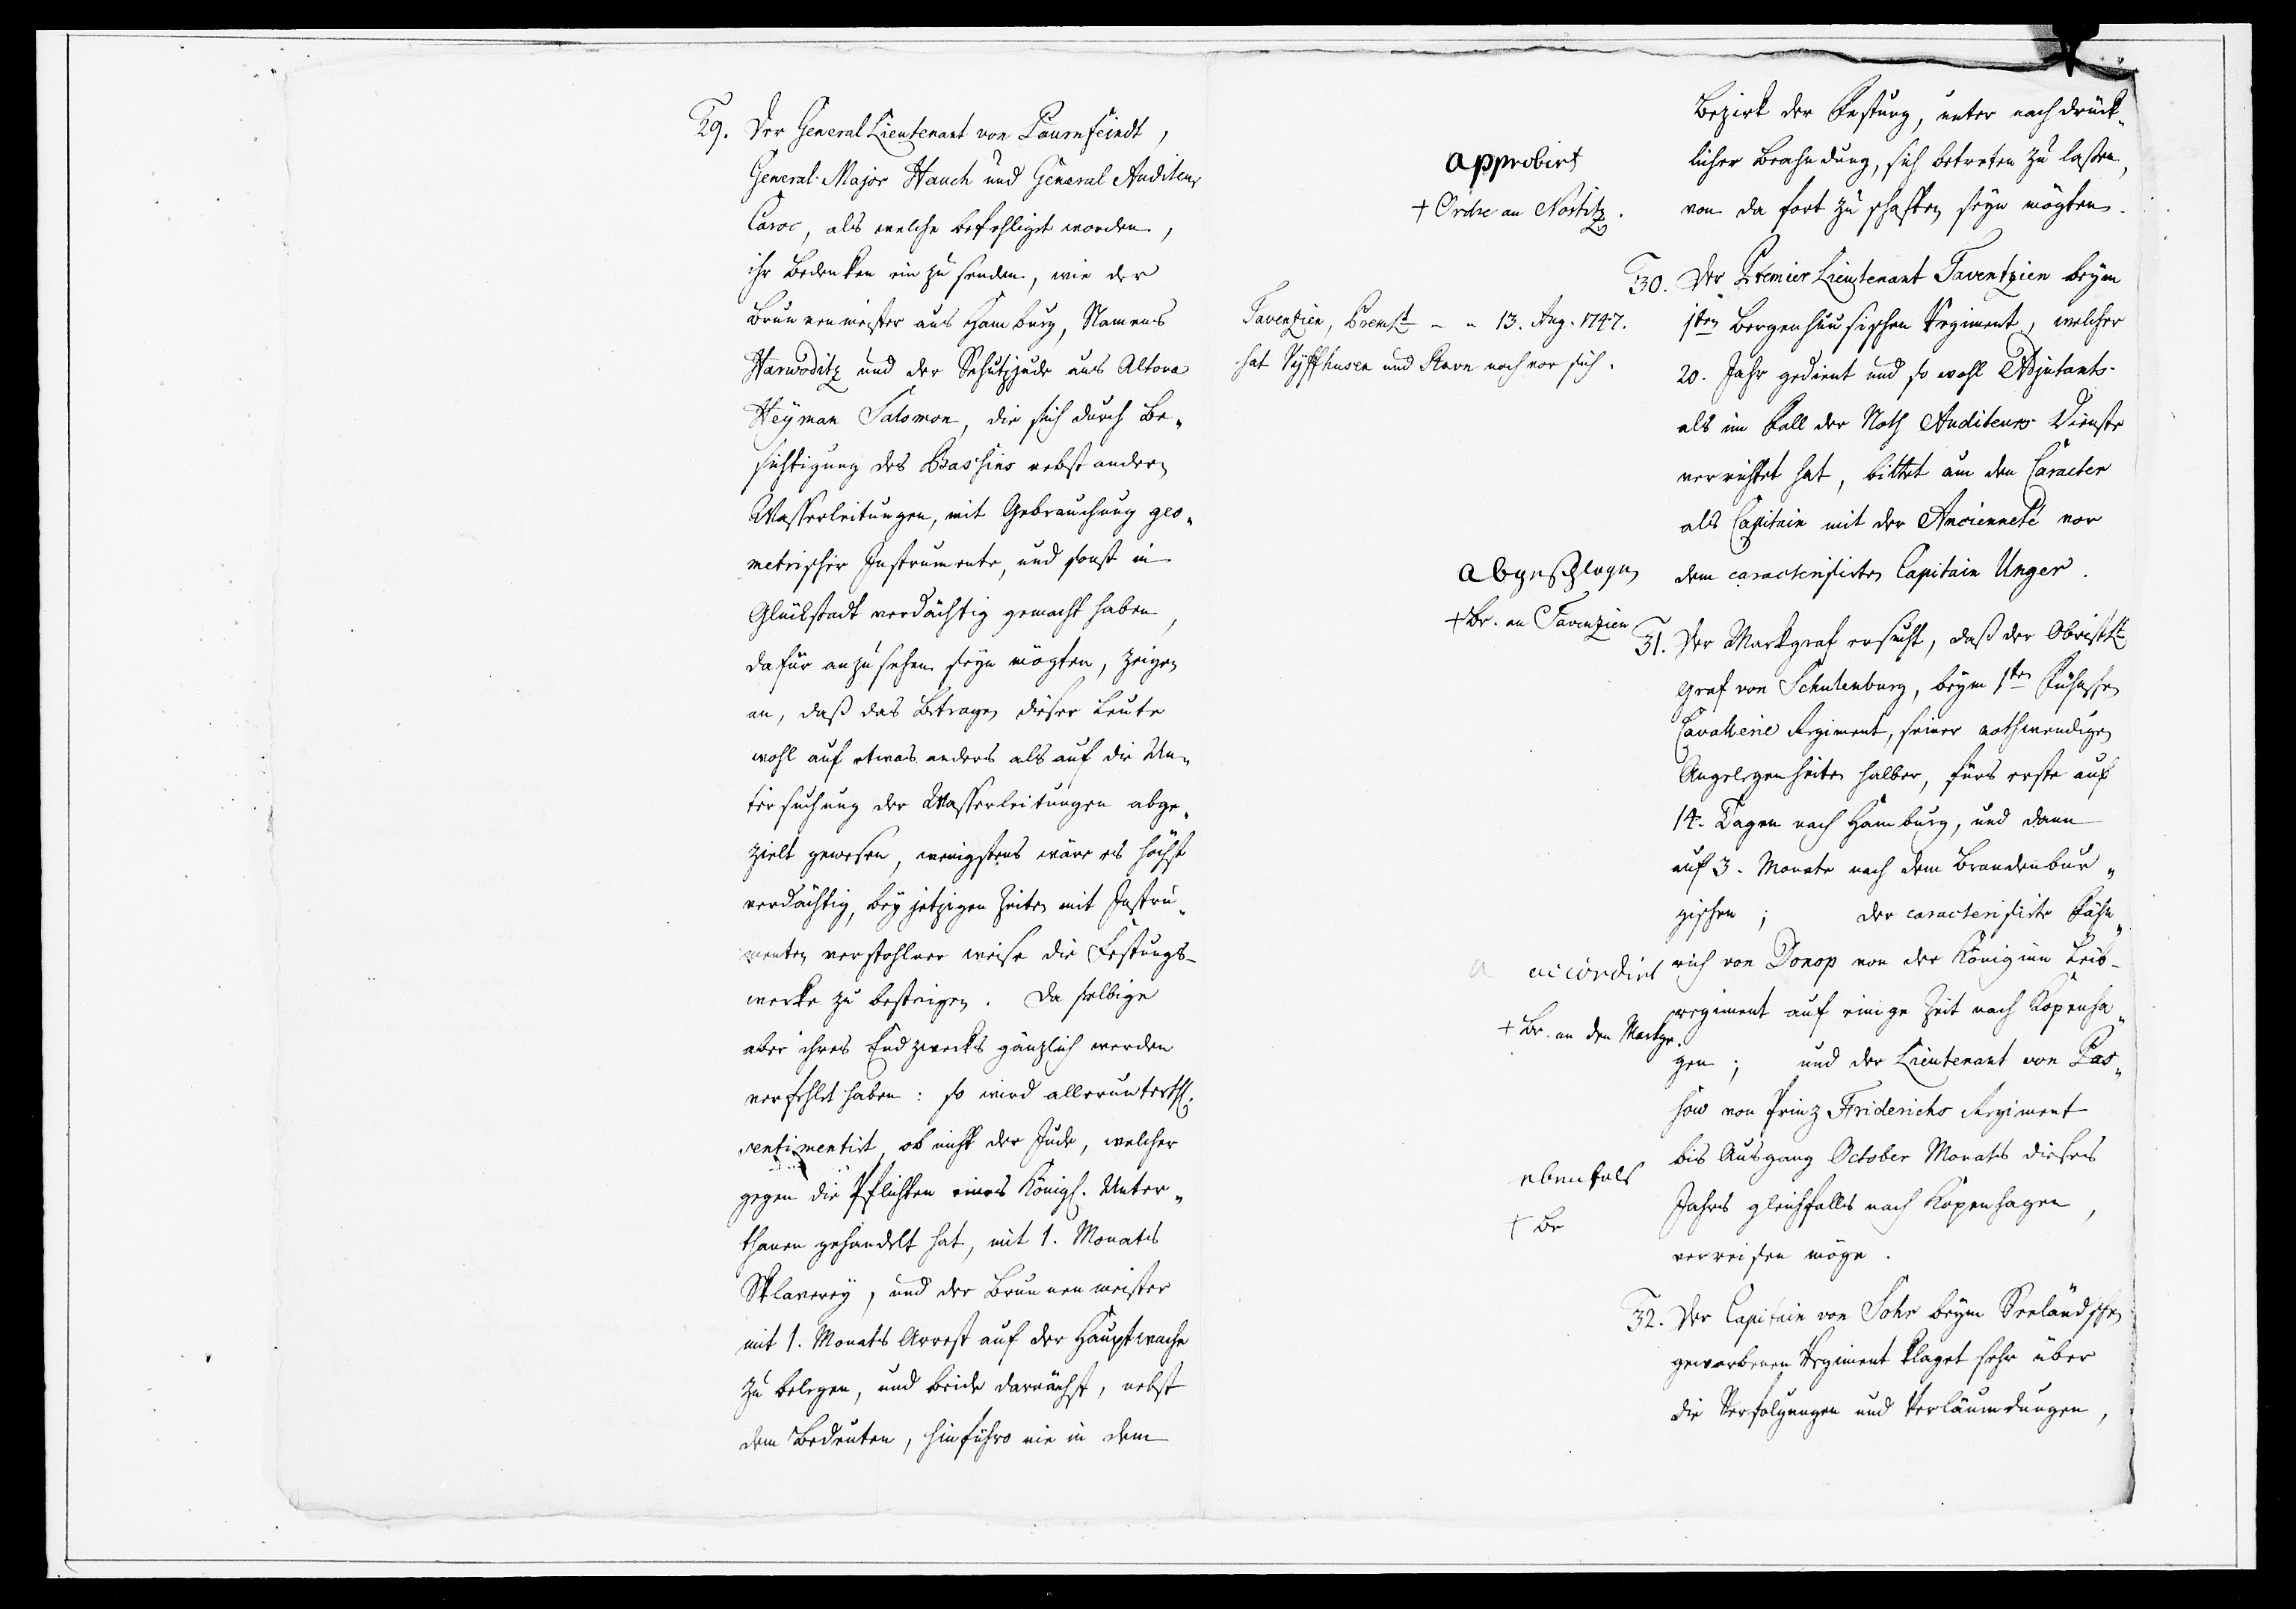 29. Der General Lieutenant von Paurnfeindt,
General-Major Hauch und General Auditeur
Caroc, als welche befehliget worden,
ihr Bedenken ein zu senden, wie der
Brunnenmeister aus Hamburg, Namens
Harwoditz und der Schutzjude aus Altona
Heyman Salomon, die sich durch Be„
sichtigung des Bassins nebst andern
Wasserleitungen, mit Gebrauchung geo„
metrischer Instrumente, und sonst in
Glückstadt verdächtig gemacht haben,
dafür anzusehen seyn mögten, zeigen
an, daß das Betragen dieser Leute
wohl auf etwas anders als auf die Un„
tersuchung der Wasserleitungen abge„
zielt gewesen, wenigstens wäre es höchst
verdächtig, bey jetzigen Zeiten mit Instru„
menten verstohlner weise die Festungs-
werke zu besteigen. Da selbige
aber ihres Endzwecks gänzlich werden
verfehlet haben: so wird allerunterth.
sentimentirt, ob nicht der Jude, welcher
gegen die Pflichten eines Königl. Unter„
thanen gehandelt hat, mit 1. Monats
Sklaverey, und der Brunnenmeister
mit 1. Monats Arrest auf der Hauptwache
zu belegen, und beide darnächst, nebst
dem Bedeuten, hinführo nie in dem
Bezirk der Festung, unter nachdrück„
licher Beahndung, sich betreten zu lassen,
von da fort zu schaffen seyn mögten.
approbirt
+ Ordre an Nostitz.
30. Der Premier Lieutenant Taventzien beym
1sten Bergenhuusischen Regiment, welcher
20. Jahr gedient und so wohl Adjutants-
als im Fall der Noth Auditeurs Dienste
verrichtet hat, bittet um den Caracter
als Capitain mit der Ancienneté vor
dem caracterisirten Capitain Unger.
Tavenzien, Premlt - - 13. Aug. 1747.
hat Nyffhusen und Ravn noch vor sich.
abgeschlagen
+ Br. an Tavenzien
31. Der Markgraf ersucht, daß der Obristlt
Graf von Schulenburg, beym 1sten Fühnsche
Cavallerie Regiment, seiner nothwendigen
Angelegenheiten halber, fürs erste auf
14. Tagen nach Hamburg, und dann
auf 3. Monate nach dem Brandenbur„
gischen; der caracterisirte Fähn„
rich von Donop von der Königinn Leib-
regiment auf einige Zeit nach Kopenha„
gen; und der Lieutenant von Pas„
sow von Prinz Friderichs Regiment
bis Ausgang October Monats dieses
Jahres gleichfalls nach Kopenhagen,
verreisen möge.
accordirt
+ Br. an den Markgr.
ebenfals
+ Br
32. Der Capitain von Sohr beym Seeländschen
geworbenen Regiment klaget sehr über
die Verfolgungen und Verläumdungen,